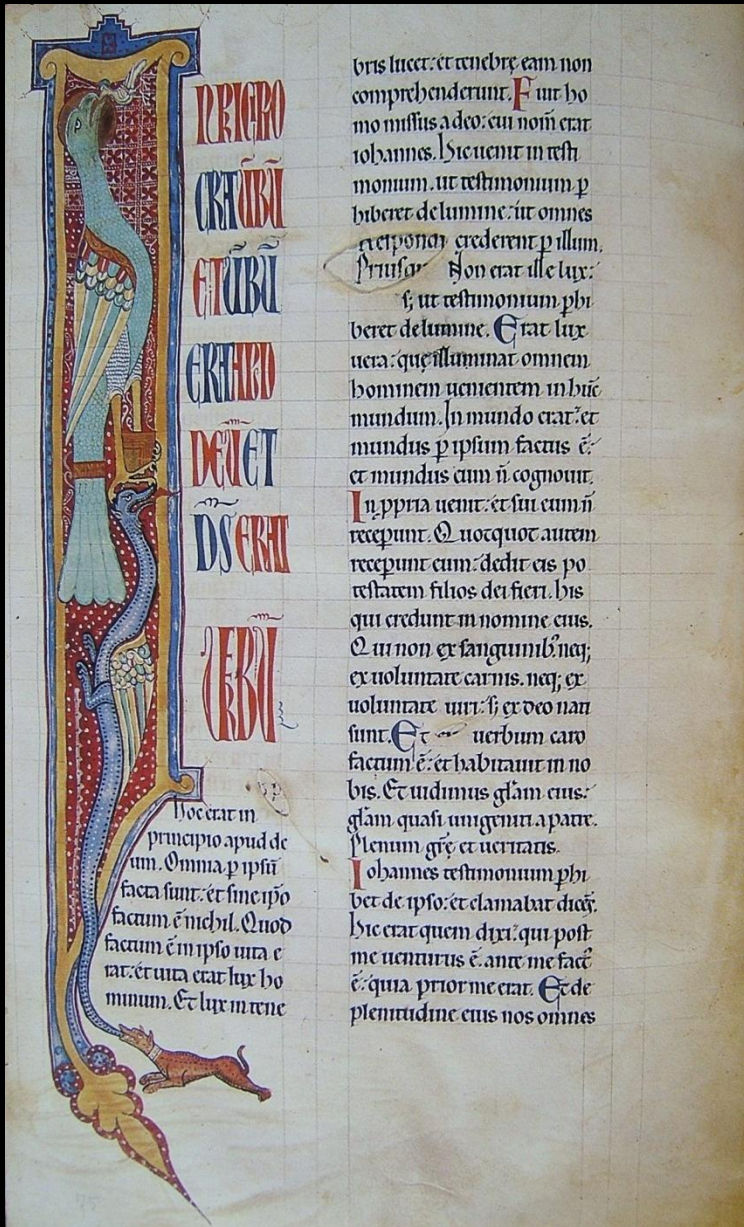 IN PRICIPIO
ERAT ŪBŪ
ET ŪBŪ
ERAT APD
DEŪ ET
D̄S ERAT
VERBŪ
hoc erat in
principio apud de
um. Omnia p ipsū
facta sunt: et sine ipo
factum ē nichil. Quod
factum ē in ipso uita e
rat: et uita erat lux ho
minum. Et lux in tene
bris lucet: et tenebrę eam non
comprehenderunt. Fuit ho
mo missus a deo: cui nom̄ erat
iohannes. Hic uenit in testi
monium. ut testimonium p
hiberet de lumine: ut omnes
crederent p illum.
Non erat ille lux:
s; ut testimonium phi
beret de lumine. Erat lux
uera: quę illuminat omnem
hominem uenientem in hūc
mundum. In mundo erat: et
mundus p ipsum factus ē:
et mundus eum n̄ cognouit.
In ppria uenit: et sui eum n̄
receperunt. Quotquot autem
receperunt eum: dedit eis po
testatem filios dei fieri. his
qui credunt in nomine eius.
Qui non ex sanguinib; neq;
ex voluntate carnis. neq; ex
voluntate uiri: s; ex deo nati
sunt. Et verbum caro
factum ē: et habitauit in no
bis. Et uidimus glam eius:
glam quasi unigeniti a patre.
Plenum grē et ueritatis.
Iohannes testimonium phi
bet de ipso: et clamabat dicēs.
Hic erat quem dixi: qui post
me uenturus ē. ante me fact
ē: quia prior me erat. Et de
plenitudine eius nos omnes